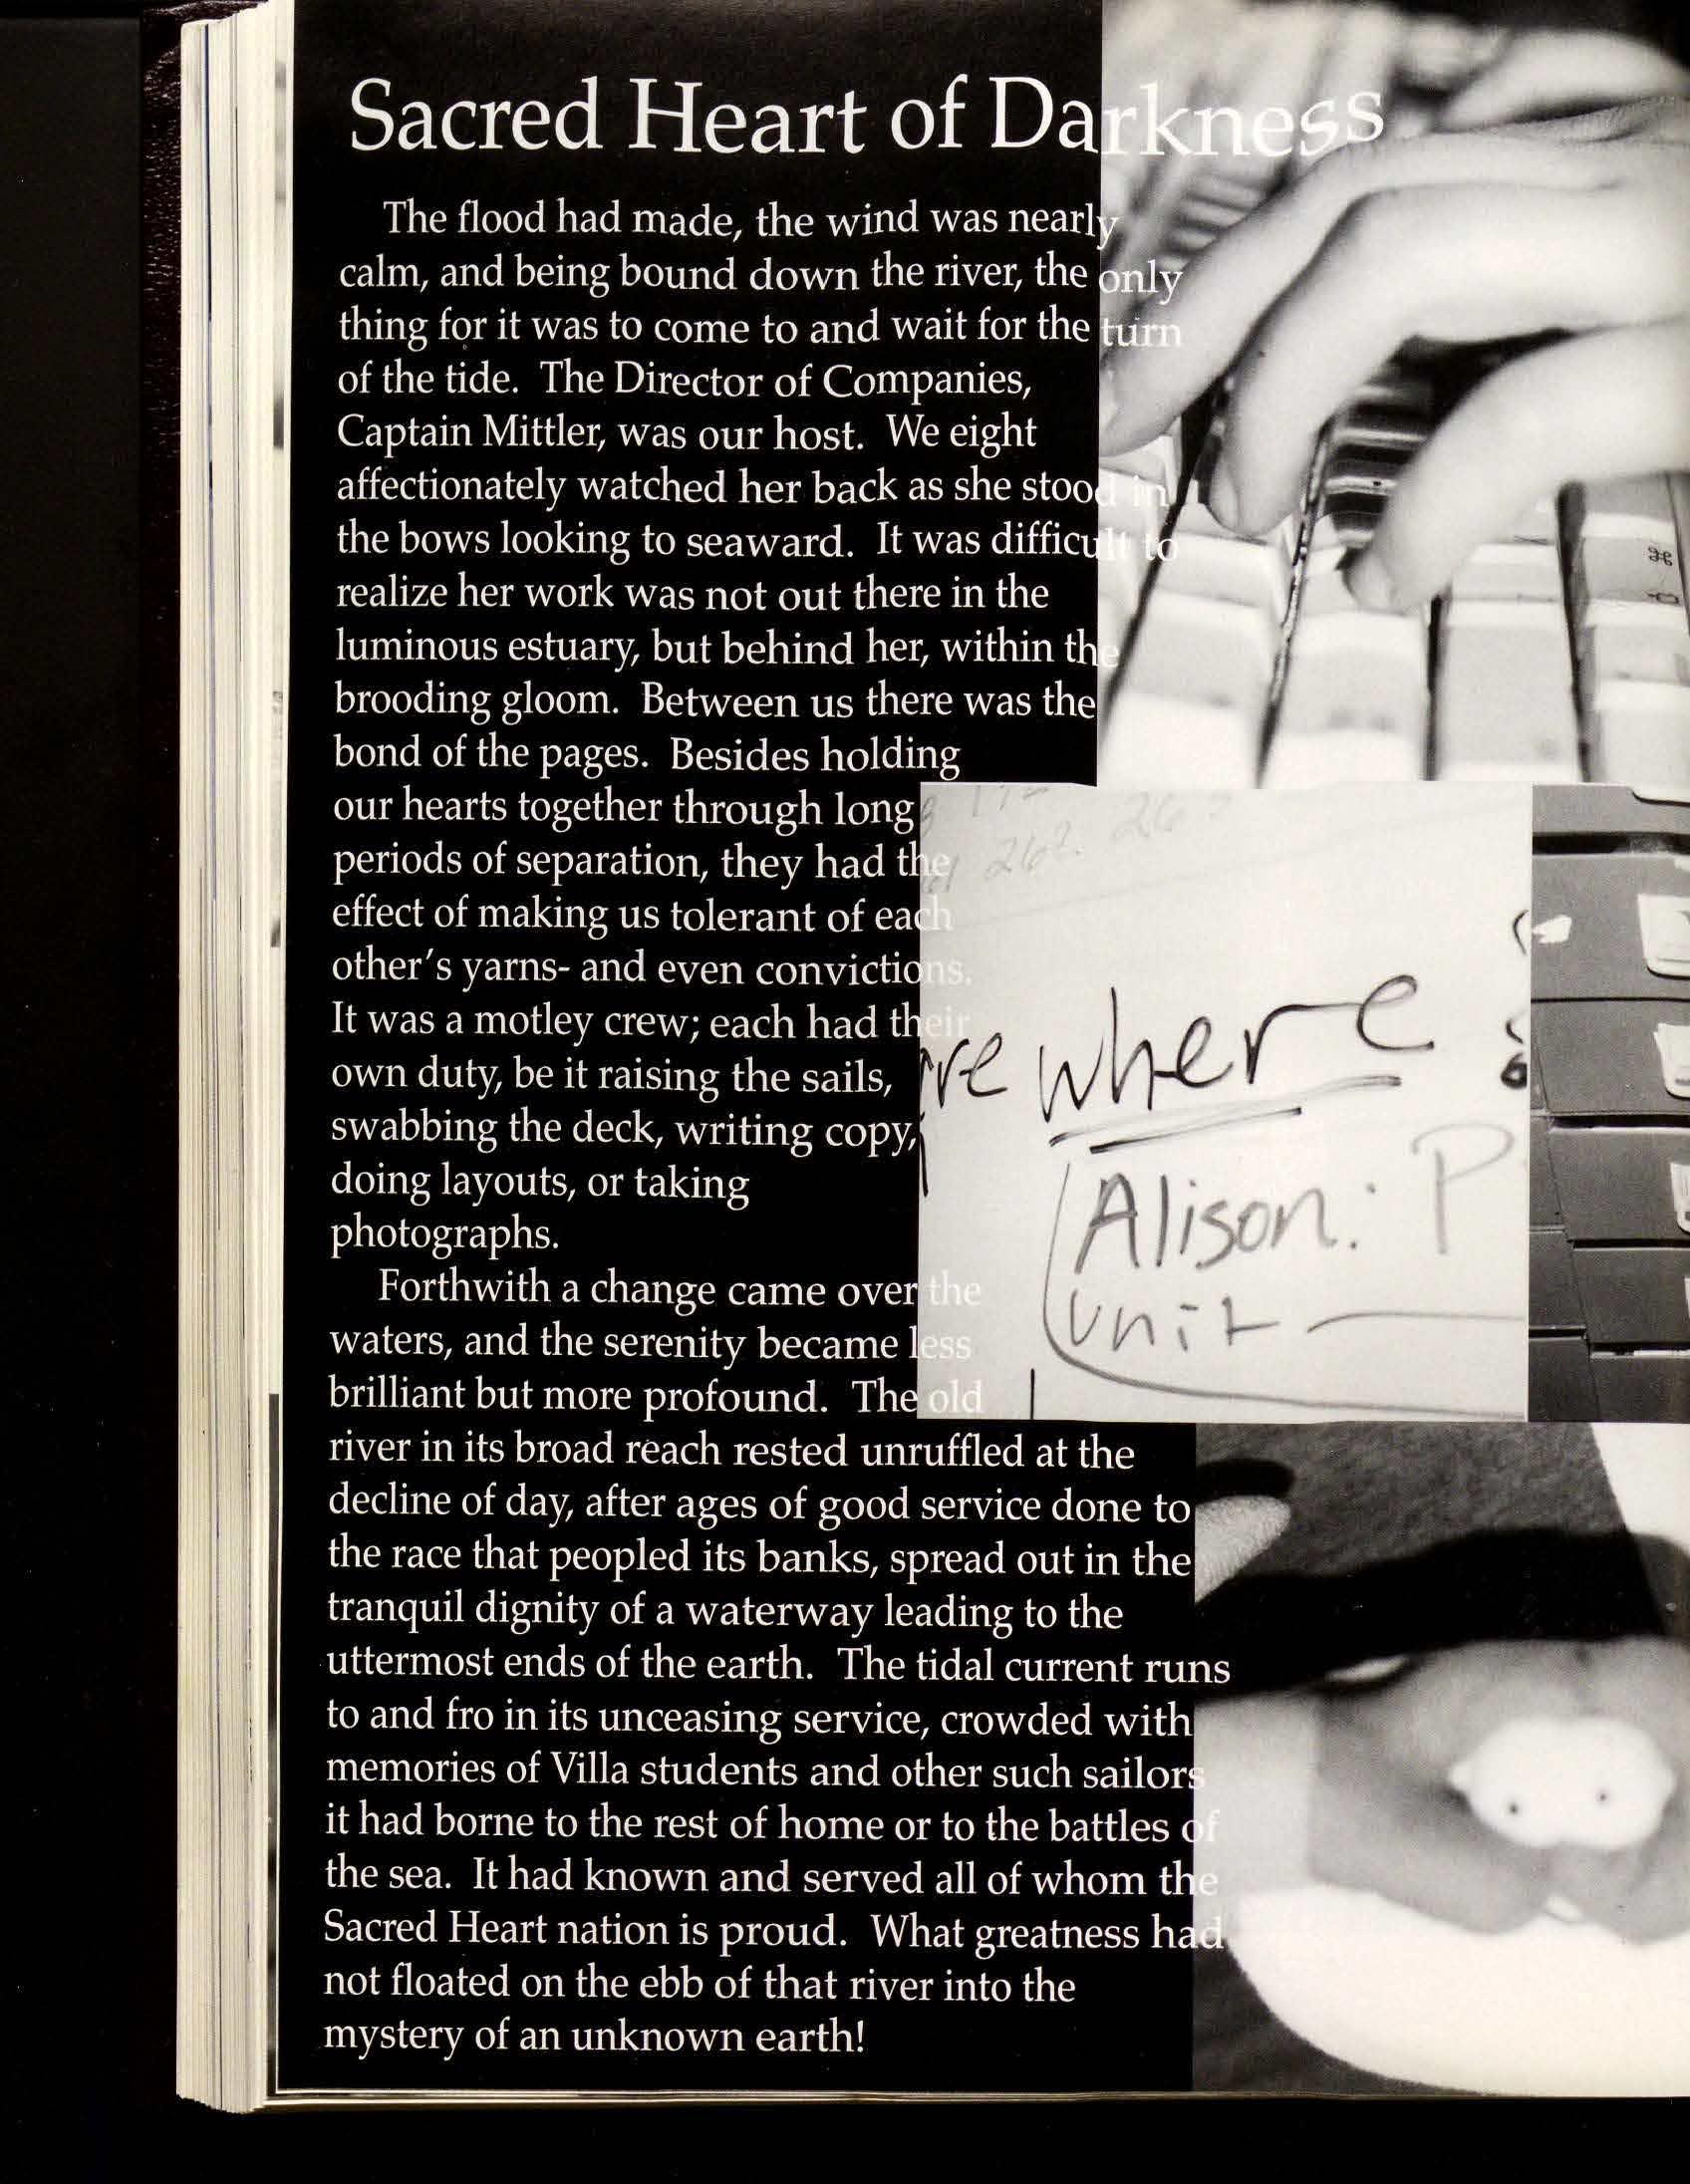 Sacred Heart of Darkness
The flood had made, the wind was nearly
calm, and being bound down the river, the only
thing for it was to come to and wait for the turn
of the tide. The Director of Companies,
Captain Mittler, was our host. We eight
affectionately watched her back as she stood in
the bows looking to seaward. It was difficult to
realize her work was not out there in the
luminous estuary, but behind her, within the
brooding gloom. Between us there was the
bond of the pages. Besides holding
our hearts together through long
periods of separation, they had the
effect of making us tolerant of each
other's yarns- and even convictions.
It was a motley crew; each had their
own duty, be it raising the sails,
swabbing the deck, writing copy,
doing layouts, or taking
photographs.
Forthwith a change came over the
waters, and the serenity became less
brilliant but more profound. The old
river in its broad reach rested unruffled at the
decline of day, after ages of good service done to
the race that peopled its banks, spread out in the
tranquil dignity of a waterway leading to the
uttermost ends of the earth. The tidal current runs
to and fro in its unceasing service, crowded with
memories of Villa students and other such sailors
it had borne to the rest of home or to the battles of
the sea. It had known and served all of whom the
Sacred Heart nation is proud. What greatness had
not floated on the ebb of that river into the
mystery of an unknown earth!
⌘
26? 26?
re where
Alison: P
unit —